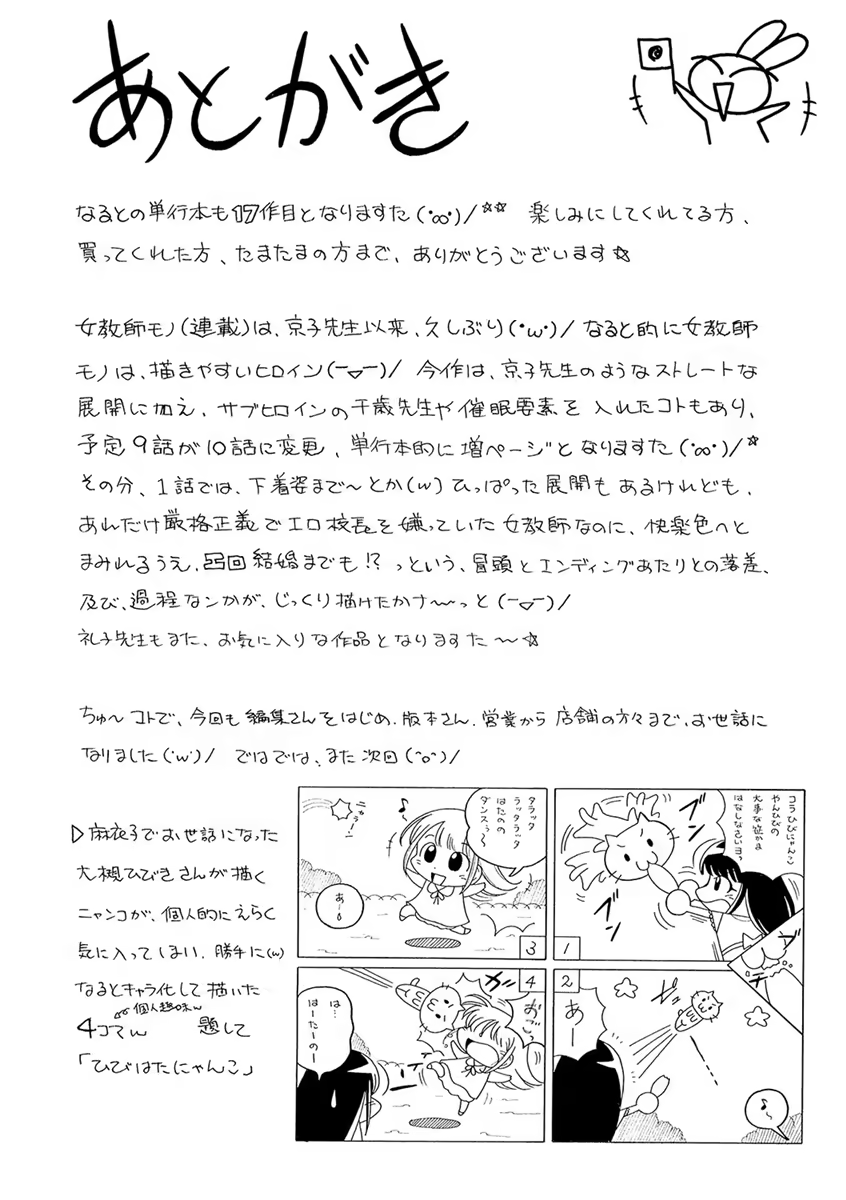 あとがき
なるとの単行本も17作目となりますた(・∞・)/☆☆ 楽しみにしてくれてる方、
買ってくれた方、たまたまの方まで、ありがとうございます☆
女教師モノ(連載)は、京子先生以来、久しぶり(・ω・)/ なると的に女教師
モノは、描きやすいヒロイン(ー▽ー)/ 今作は、京子先生のようなストレートな
展開に加え、サブヒロインの千歳先生や催眠要素を入れたコトもあり、
予定9話が10話に変更、単行本的に増ページとなりますた(・∞・)/☆
その分、1話では、下着姿まで〜とか(w)ひっぱった展開もあるけれども、
あれだけ厳格正義でエロ校長を嫌っていた女教師なのに、快楽色へと
まみれるうえ、凸凹結婚までも!? っという、冒頭とエンディングあたりとの落差、
及び、過程なンかが、じっくり描けたかナ〜っと(ー▽ー)/
礼子先生もまた、お気に入りな作品となりますた〜☆
ちゅ〜コトで、今回も編集さんをはじめ、版本さん、営業から店舗の方々まで、お世話に
なりました(・w・)/ ではでは、また次回(^o^)/
▷麻衣子でお世話になった
大槻ひびきさんが描く
ニャンコが、個人的にえらく
気に入ってしまい、勝手に(w)
なるとキャラ化して描いた
個人趣味w
4コマw 題して
「ひびはたにゃんこ」
コラひびにゃんこ
やんひびの
大事な
はなしなさいヨっ
ブン
ブン
1
あー
♪〜
2
タラック
ラッタラッタ
はたのの
ダンスぅ〜
♪
にゃぅー!
あー
3
ガッ
おごっ
は…
はーたーのー
4